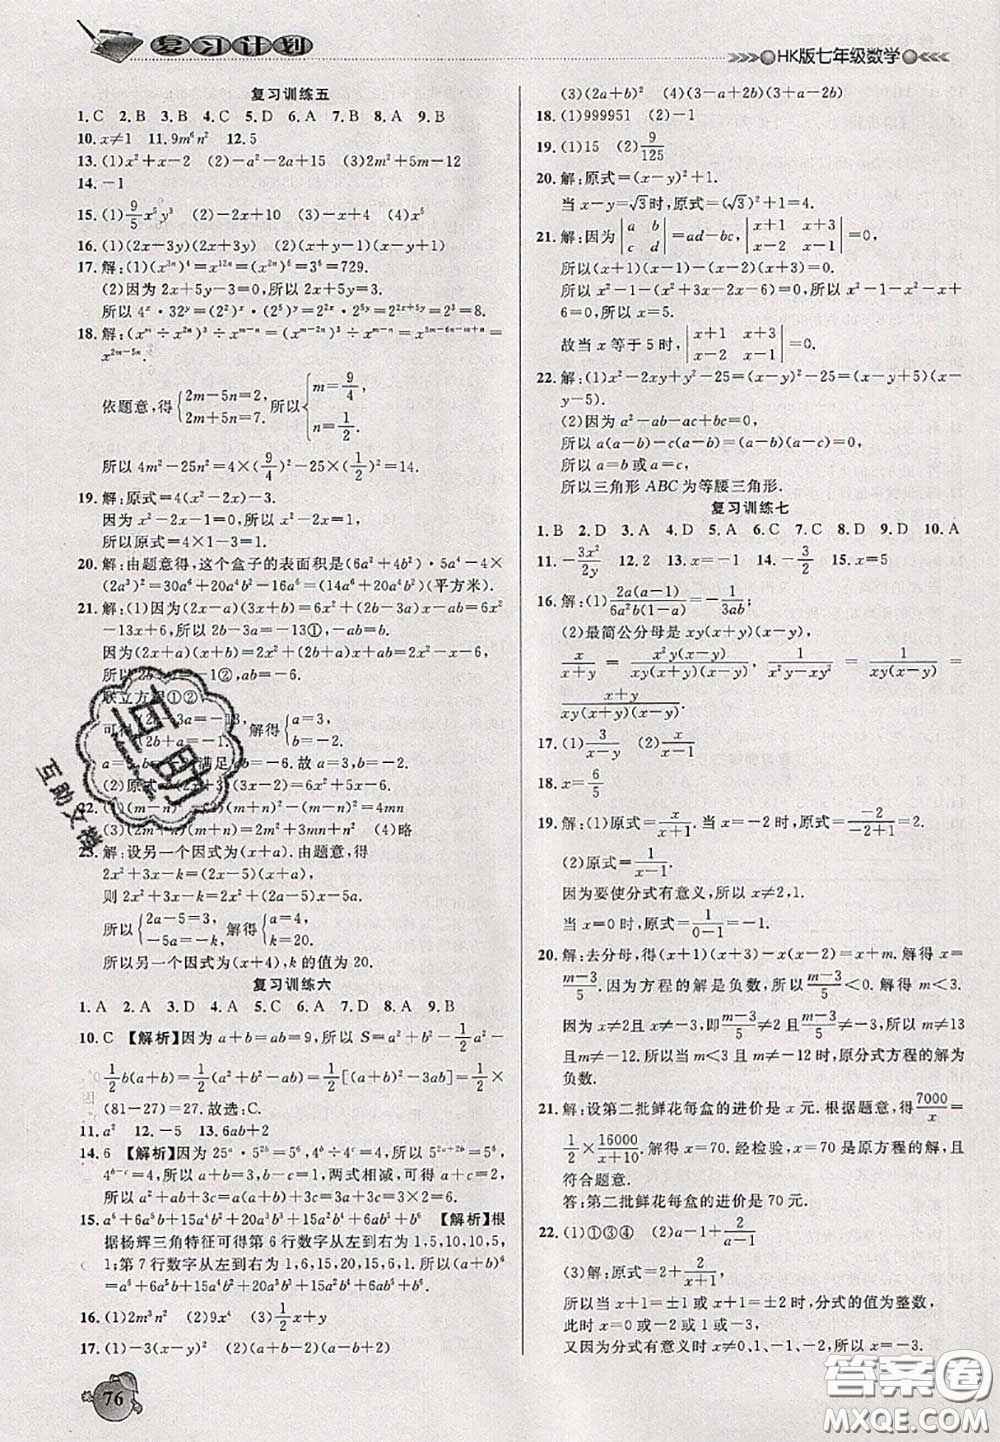 复习计划
HK版七年级数学
复习训练五
1. C 2. B 3. B 4. C 5. D 6. A 7. B 8. A 9. B
10. x≠1 11. 9m⁶n² 12. 5
13. (1)x²+x-2 (2)-a²-2a+15 (3)2m²+5m-12
14. -1
15. (1)9/5x⁵y³ (2)-2x+10 (3)-x+4 (4)x⁵
16. (1)(2x-3y)(2x+3y) (2)(x+y-1)(x-y+1)
17. 解:(1)(x³ⁿ)⁴=x¹²ⁿ=(x²ⁿ)⁶=3⁶=729.
(2)因为 2x+5y-3=0,所以 2x+5y=3.
所以 4ˣ·32ʸ=(2²)ˣ·(2⁵)ʸ=2²ˣ⁺⁵ʸ=2³=8.
18. 解:(xᵐ÷x²ⁿ)³÷xᵐ⁻ⁿ=(xᵐ⁻²ⁿ)³÷xᵐ⁻ⁿ=x³ᵐ⁻⁶ⁿ⁻ᵐ⁺ⁿ=
x²ᵐ⁻⁵ⁿ.
依题意,得{2m-5n=2, 2m+5n=7. 所以{m=9/4, n=1/2.
所以 4m²-25n²=4×(9/4)²-25×(1/2)²=14.
19. 解:原式=4(x²-2x)-3.
因为 x²-2x-1=0,所以 x²-2x=1.
所以原式=4×1-3=1.
20. 解:由题意得,这个盒子的表面积是(6a²+4ab²)·5a⁴-4×
(2a³)²=30a⁶+20a⁴b²-16a⁶=(14a⁶+20a⁴b²)(平方米).
21. 解:(1)因为(2x-a)(3x+b)=6x²+(2b-3a)x-ab=6x²
-13x+6,所以 2b-3a=-13①,-ab=6.
因为(2x+a)(x+b)=2x²+(a+2b)x+ab=2x²-x-6.
所以 2b+a=-1②,ab=-6.
联立方程①②,
可得{2b-3a=-13, 2b+a=-1. 解得{a=3, b=-2.
a=3,b=-2,满足 ab=-6.故 a=3,b=-2.
(2)原式=(2x-3)(3x-2)=6x²-13x+6.
22. (1)(m-n)² (2)(m+n)²-(m-n)²=4mn
(3)(2m+n)(m+n)=2m²+3mn+n² (4)略
23. 解:设另一个因式为(x+a).由题意,得
2x²+3x-k=(2x-5)(x+a),
则 2x²+3x-k=2x²+(2a-5)x-5a.
所以{2a-5=3, -5a=-k, 解得{a=4, k=20.
所以另一个因式为(x+4),k的值为 20.
复习训练六
1. A 2. A 3. D 4. D 5. D 6. A 7. D 8. A 9. B
10. C 【解析】因为 a+b=ab=9,所以 S=a²+b²-1/2a²-
1/2b(a+b)=1/2(a²+b²-ab)=1/2[(a+b)²-3ab]=1/2×
(81-27)=27.故选:C.
11. a² 12. -5 13. 6ab+2
14. 6 【解析】因为 25ᵃ·5²ᵇ=5⁶,4ᵇ÷4ᶜ=4,所以 5²⁽ᵃ⁺ᵇ⁾=5⁶,
4ᵇ⁻ᶜ=4,所以 a+b=3,b-c=1,两式相减,可得 a+c=2,
所以 a²+ab+3c=a(a+b)+3c=3a+3c=3×2=6.
15. a⁶+6a⁵b+15a⁴b²+20a³b³+15a²b⁴+6ab⁵+b⁶ 【解析】根
据杨辉三角特征可得第 6 行数字从左到右为 1,5,10,10,5,
1;第 7 行数字从左到右为 1,6,15,20,15,6,1,所以(a+b)⁶
=a⁶+6a⁵b+15a⁴b²+20a³b³+15a²b⁴+6ab⁵+b⁶.
16. (1)2m³n² (2)9x⁴ (3)1/2x+y
17. (1)-3(x-y)² (2)(a+2b+2)(a+2b-2)
76
(3)(2a+b)² (4)(3-a+2b)(3+a-2b)
18. (1)999951 (2)-1
19. (1)15 (2)9/125
20. 解:原式=(x-y)²+1.
当 x-y=√3时,原式=(√3)²+1=4.
21. 解:因为|a b; c d|=ad-bc,|x+1 x+3; x-2 x-1|=0,
所以(x+1)(x-1)-(x-2)(x+3)=0,
所以 x²-1-(x²+3x-2x-6)=0,所以 x²-1-x²-x+
6=0,所以 x=5.
故当 x 等于 5 时,|x+1 x+3; x-2 x-1|=0.
22. 解:(1)x²-2xy+y²-25=(x-y)²-25=(x-y+5)(x
-y-5).
(2)因为 a²-ab-ac+bc=0,
所以 a(a-b)-c(a-b)=0,所以(a-b)(a-c)=0,
所以 a=b 或 a=c,
所以三角形 ABC 为等腰三角形.
复习训练七
1. B 2. D 3. A 4. D 5. A 6. C 7. C 8. D 9. D 10. A
11. -3x²/2y 12. 2 13. x=-1 14. -3/2 15. x=5
16. 解:(1)2a(a-1)/6a²b(1-a)=-1/3ab;
(2)最简公分母是 xy(x+y)(x-y),
x/x+y=x²y(x-y)/xy(x+y)(x-y),1/x²y-xy²=1/xy(x-y)=
x+y/xy(x+y)(x-y).
17. (1)3/x-y (2)x/x-1
18. x=6/5
19. 解:(1)原式=x/x+1.当 x=-2时,原式=-2/-2+1=2.
(2)原式=1/x-1.
因为要使分式有意义,所以 x≠2,1.
当 x=0时,原式=1/0-1=-1.
20. 解:去分母,得(x+1)(x+3)-x(x-2)=x+m.解得 x=
m-3/5.因为方程的解是负数,所以m-3/5<0.解得 m<3.
因为 x≠2,x≠-3,即m-3/5≠2,m-3/5≠-3,所以 m≠13
且 m≠-12.所以当 m<3 且 m≠-12时,原分式方程的解为
负数.
21. 解:设第二批鲜花每盒的进价是 x 元.根据题意,得7000/x=
1/2×16000/x+10.解得 x=70.经检验,x=70 是原方程的解,且
符合题意.
答:第二批鲜花每盒的进价是 70 元.
22. (1)①③④ (2)a-1+2/a-1
(3)解:原式=2+2/x+1,
所以当 x+1=±1或 x+1=±2时,分式的值为整数,
此时 x=0或-2或 1或-3.
又因为分式有意义时 x≠0、1、-1、-2,所以 x=-3.
互助
互助文档
答案卷
MXQE.COM